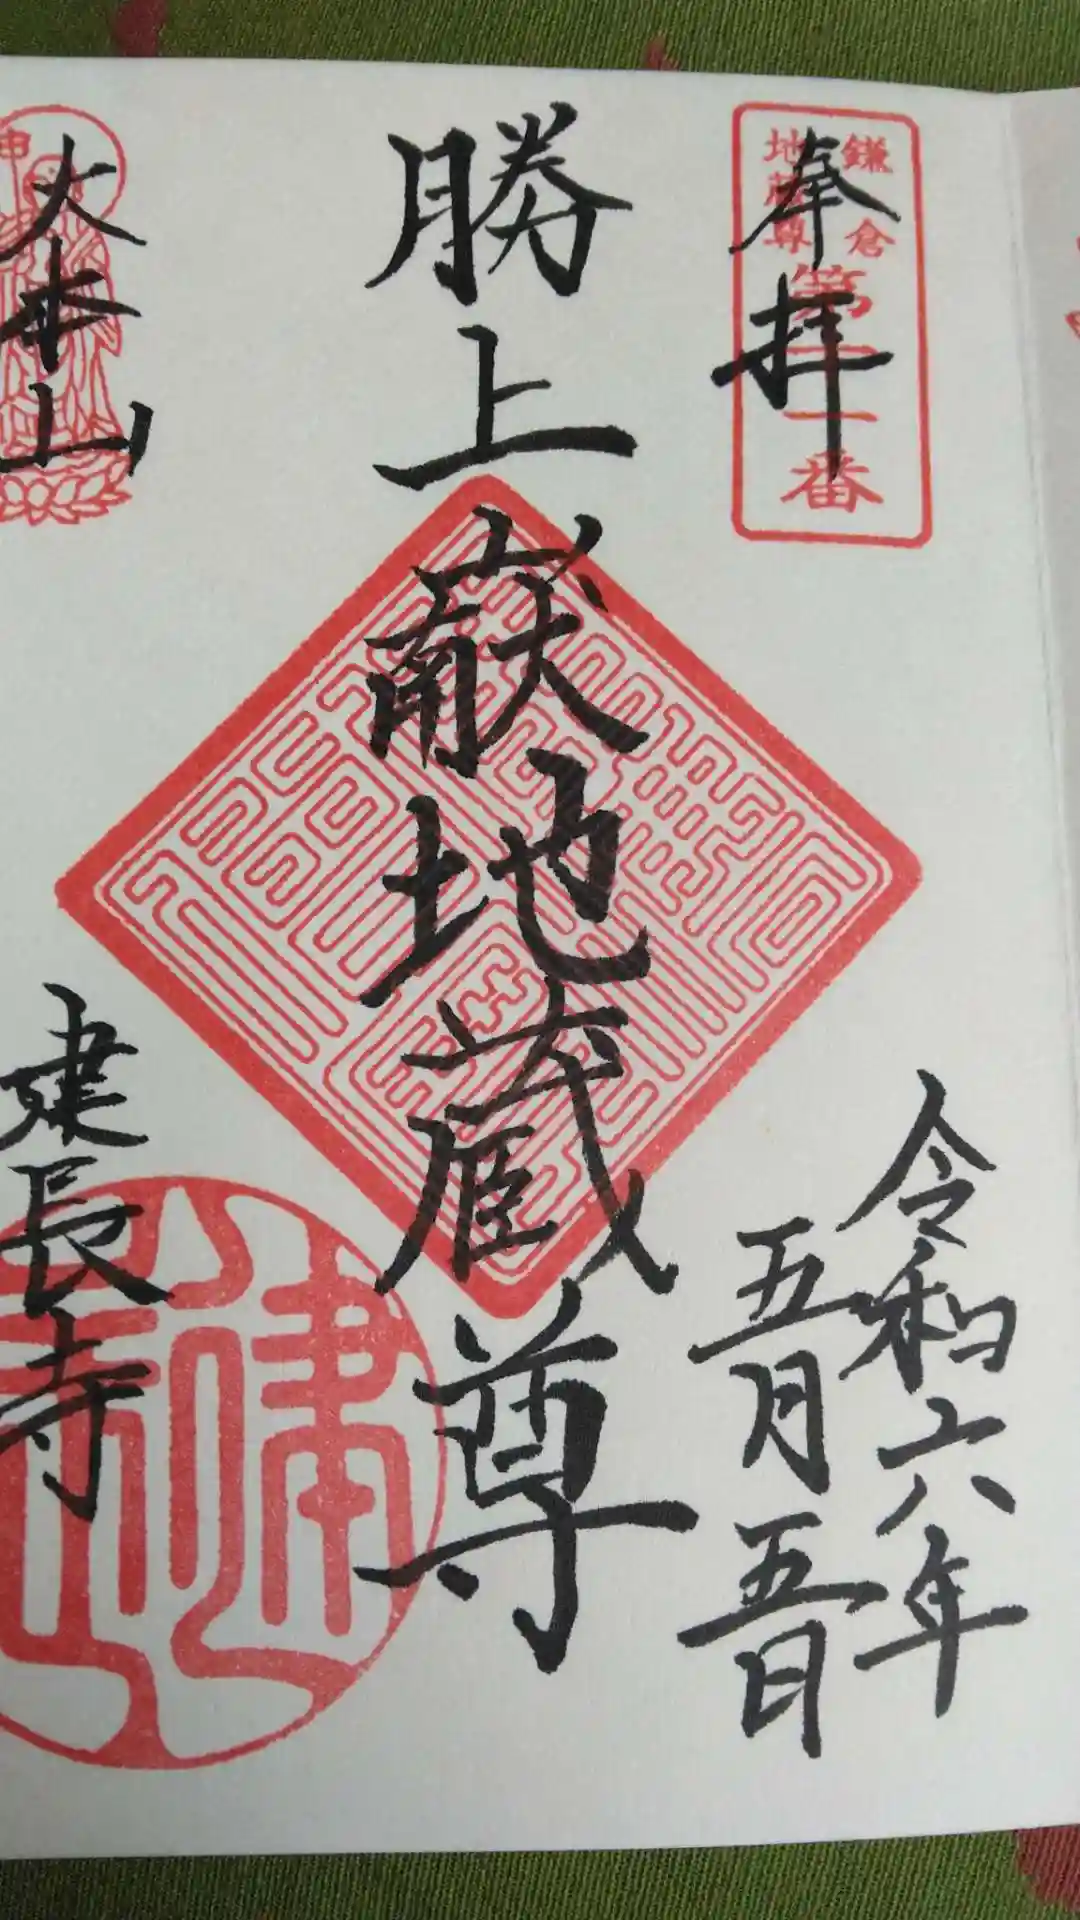 奉拝
鎌倉
地蔵尊
第十一番
令和六年
五月五日
勝上嶽地蔵尊
大本山
建長寺